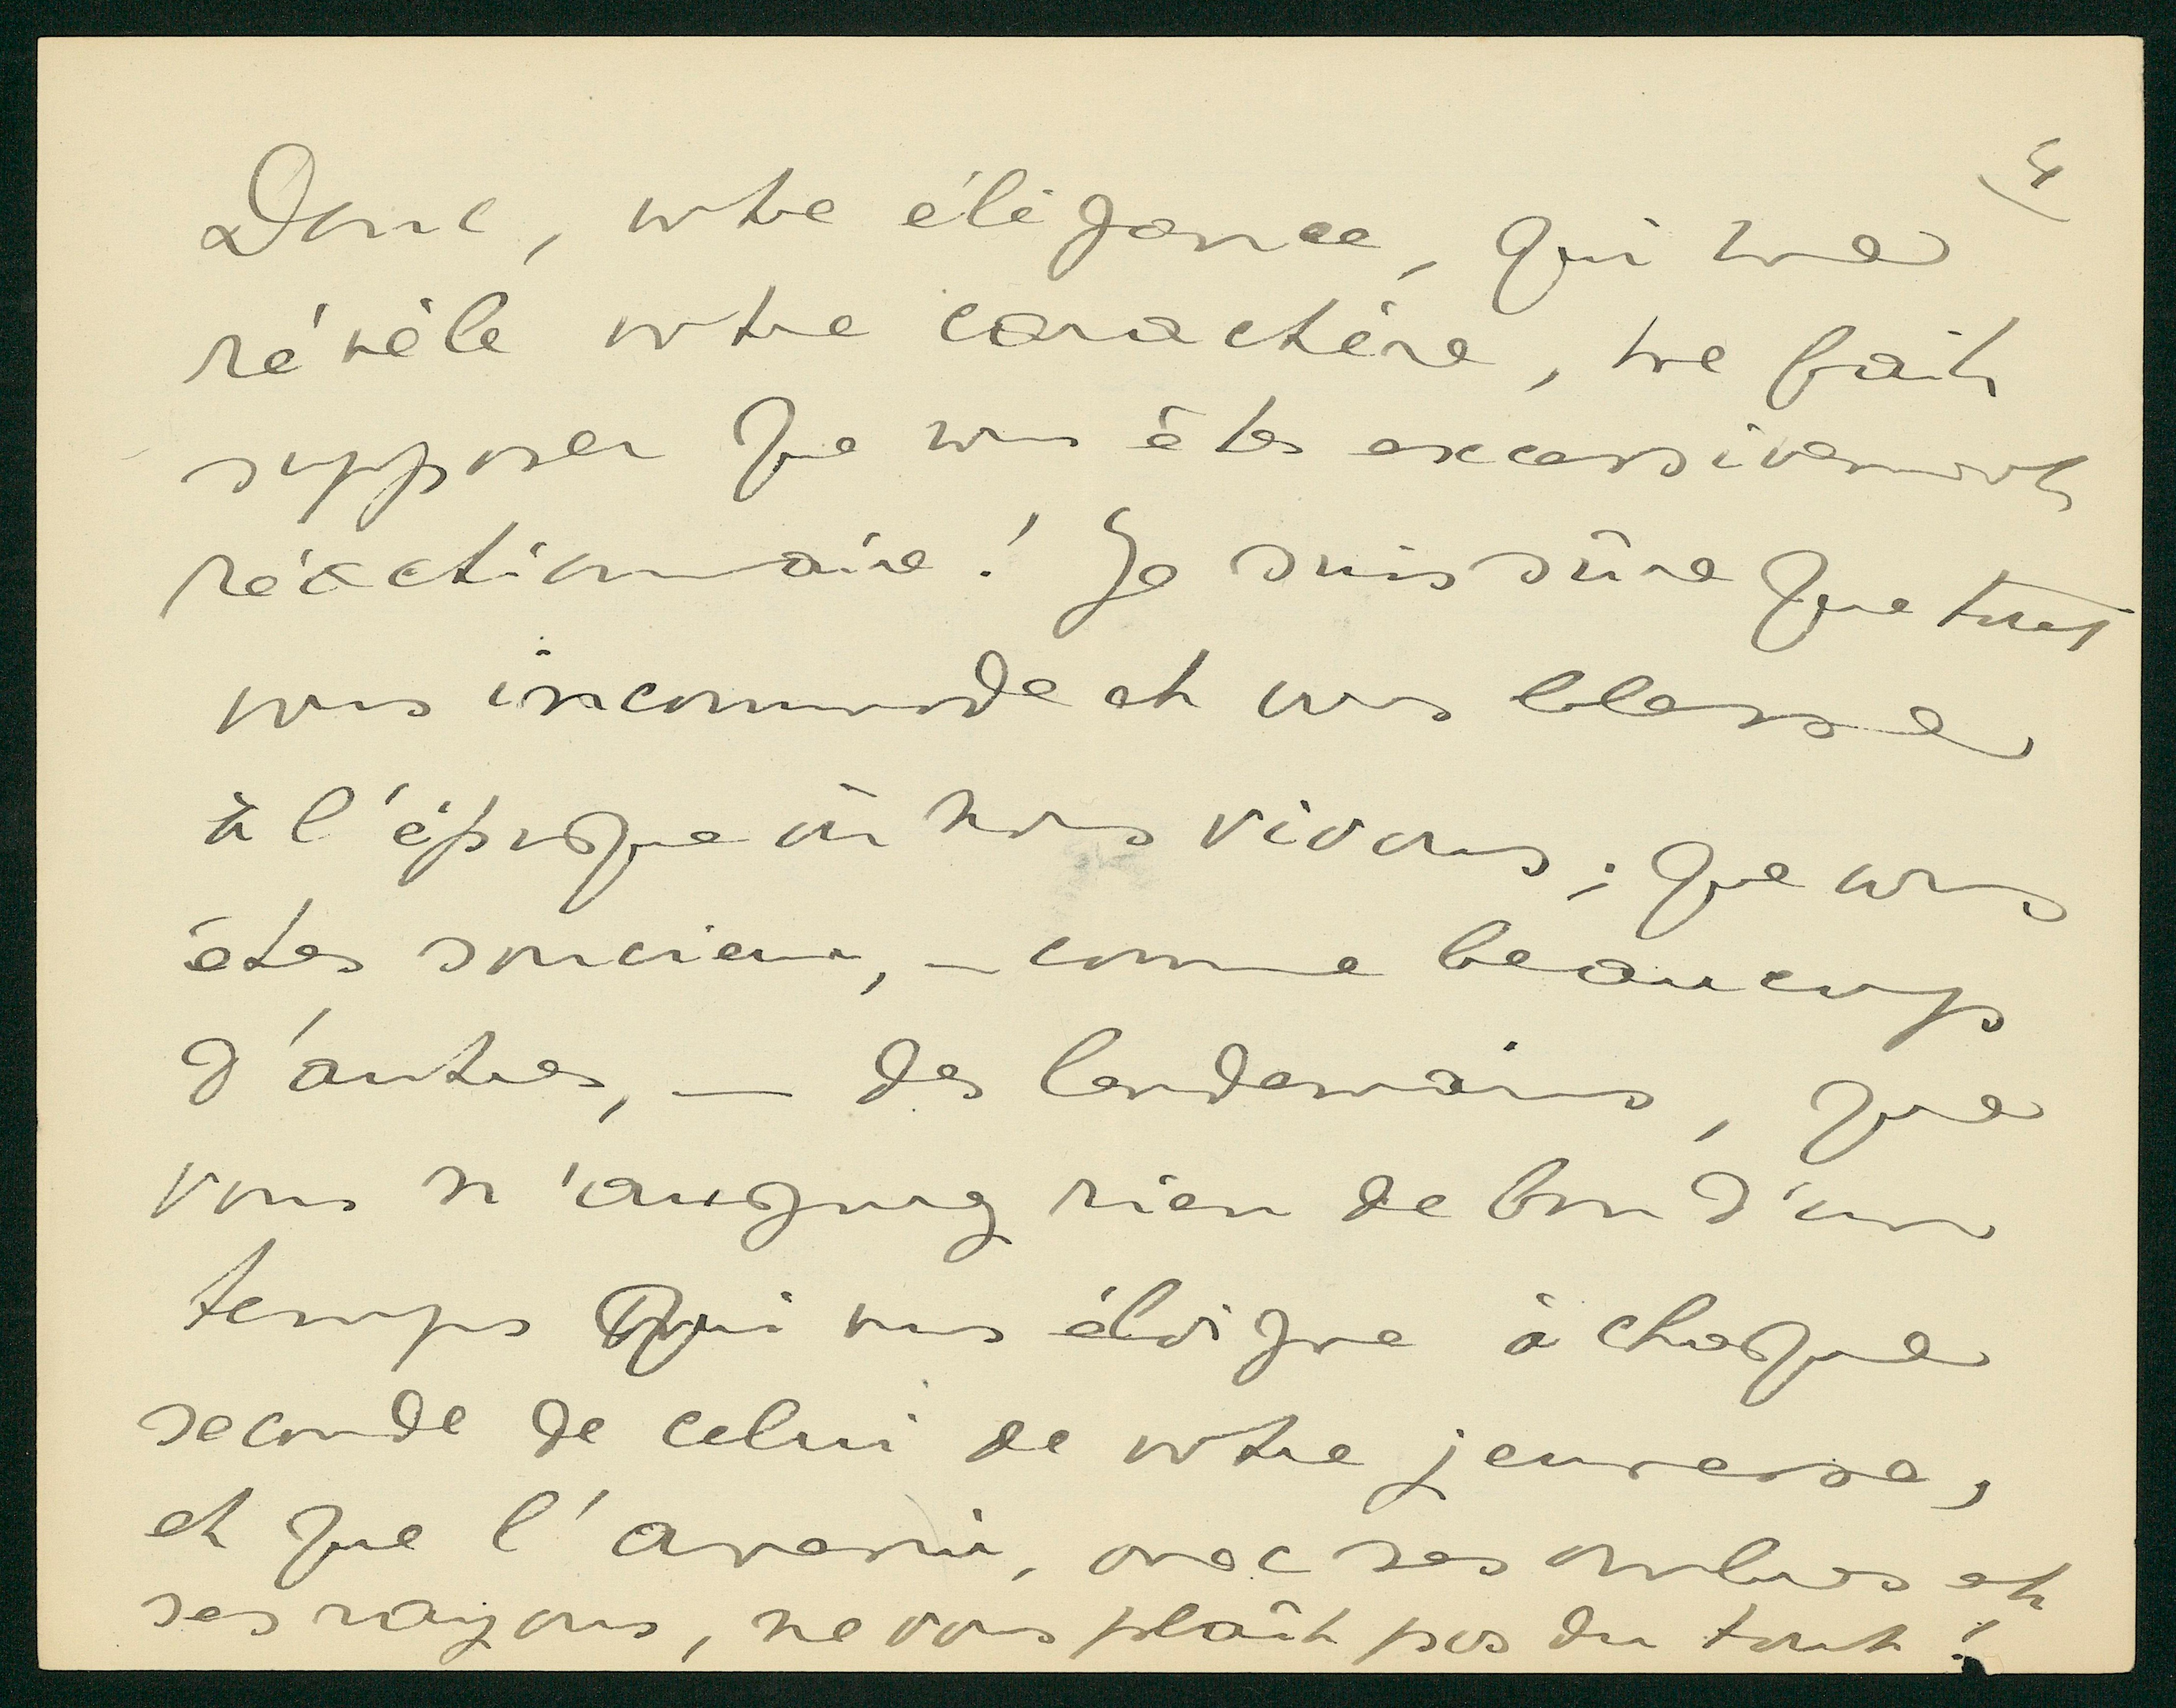 4
Donc, votre élégance, qui me
révèle votre caractère, me fait
supposer que vous êtes excessivement
réactionnaire! Je suis sûre que tout
vous incommode et vous blesse
à l'époque où nous vivons; que vous
êtes soucieux, – comme beaucoup
d'autres, – des lendemains, que
vous n'augurez rien de bon d'un
temps qui vous éloigne à chaque
seconde de celui de votre jeunesse,
et que l'avenir, avec ses ombres et
ses rayons, ne vous plaît pas du tout!